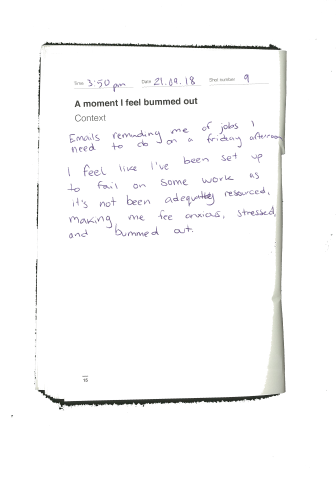 Time 3:50 pm Date 21.09.18 Shot number 9
A moment I feel bummed out
Context
Emails reminding me of jobs I
need to do on a friday afternoon
I feel like I've been set up
to fail on some work as
it's not been adequately resourced,
making me fee anxious, stressed,
and bummed out.
15